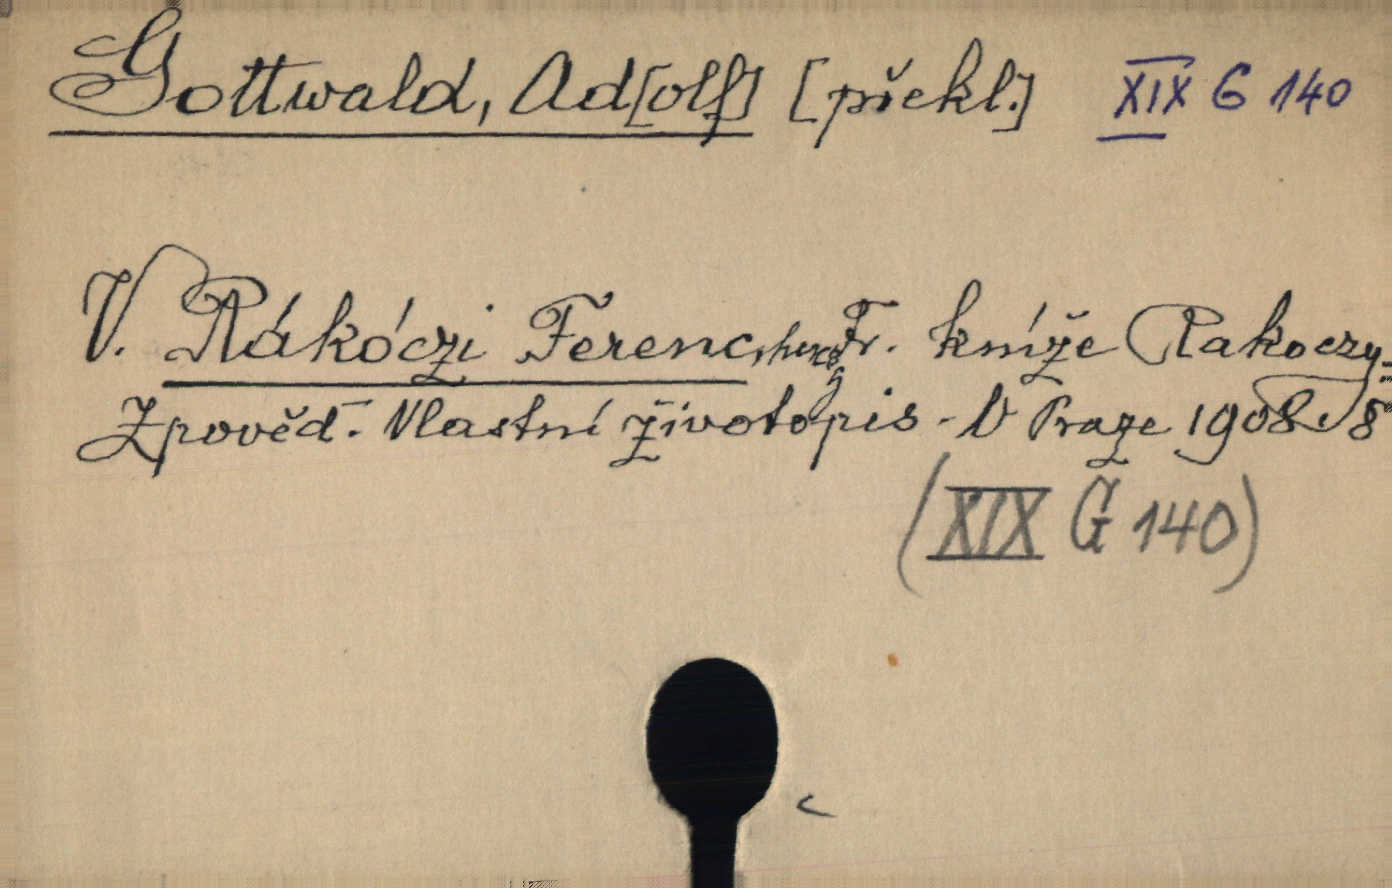 Gottwald, Ad[olf] [překl.] XIX G 140
V. Rákóczi Ferenc, herceg Fr. kníže Rakoczy:
Zpověď. Vlastní životopis. V Praze 1908. 8°
(XIX G 140)